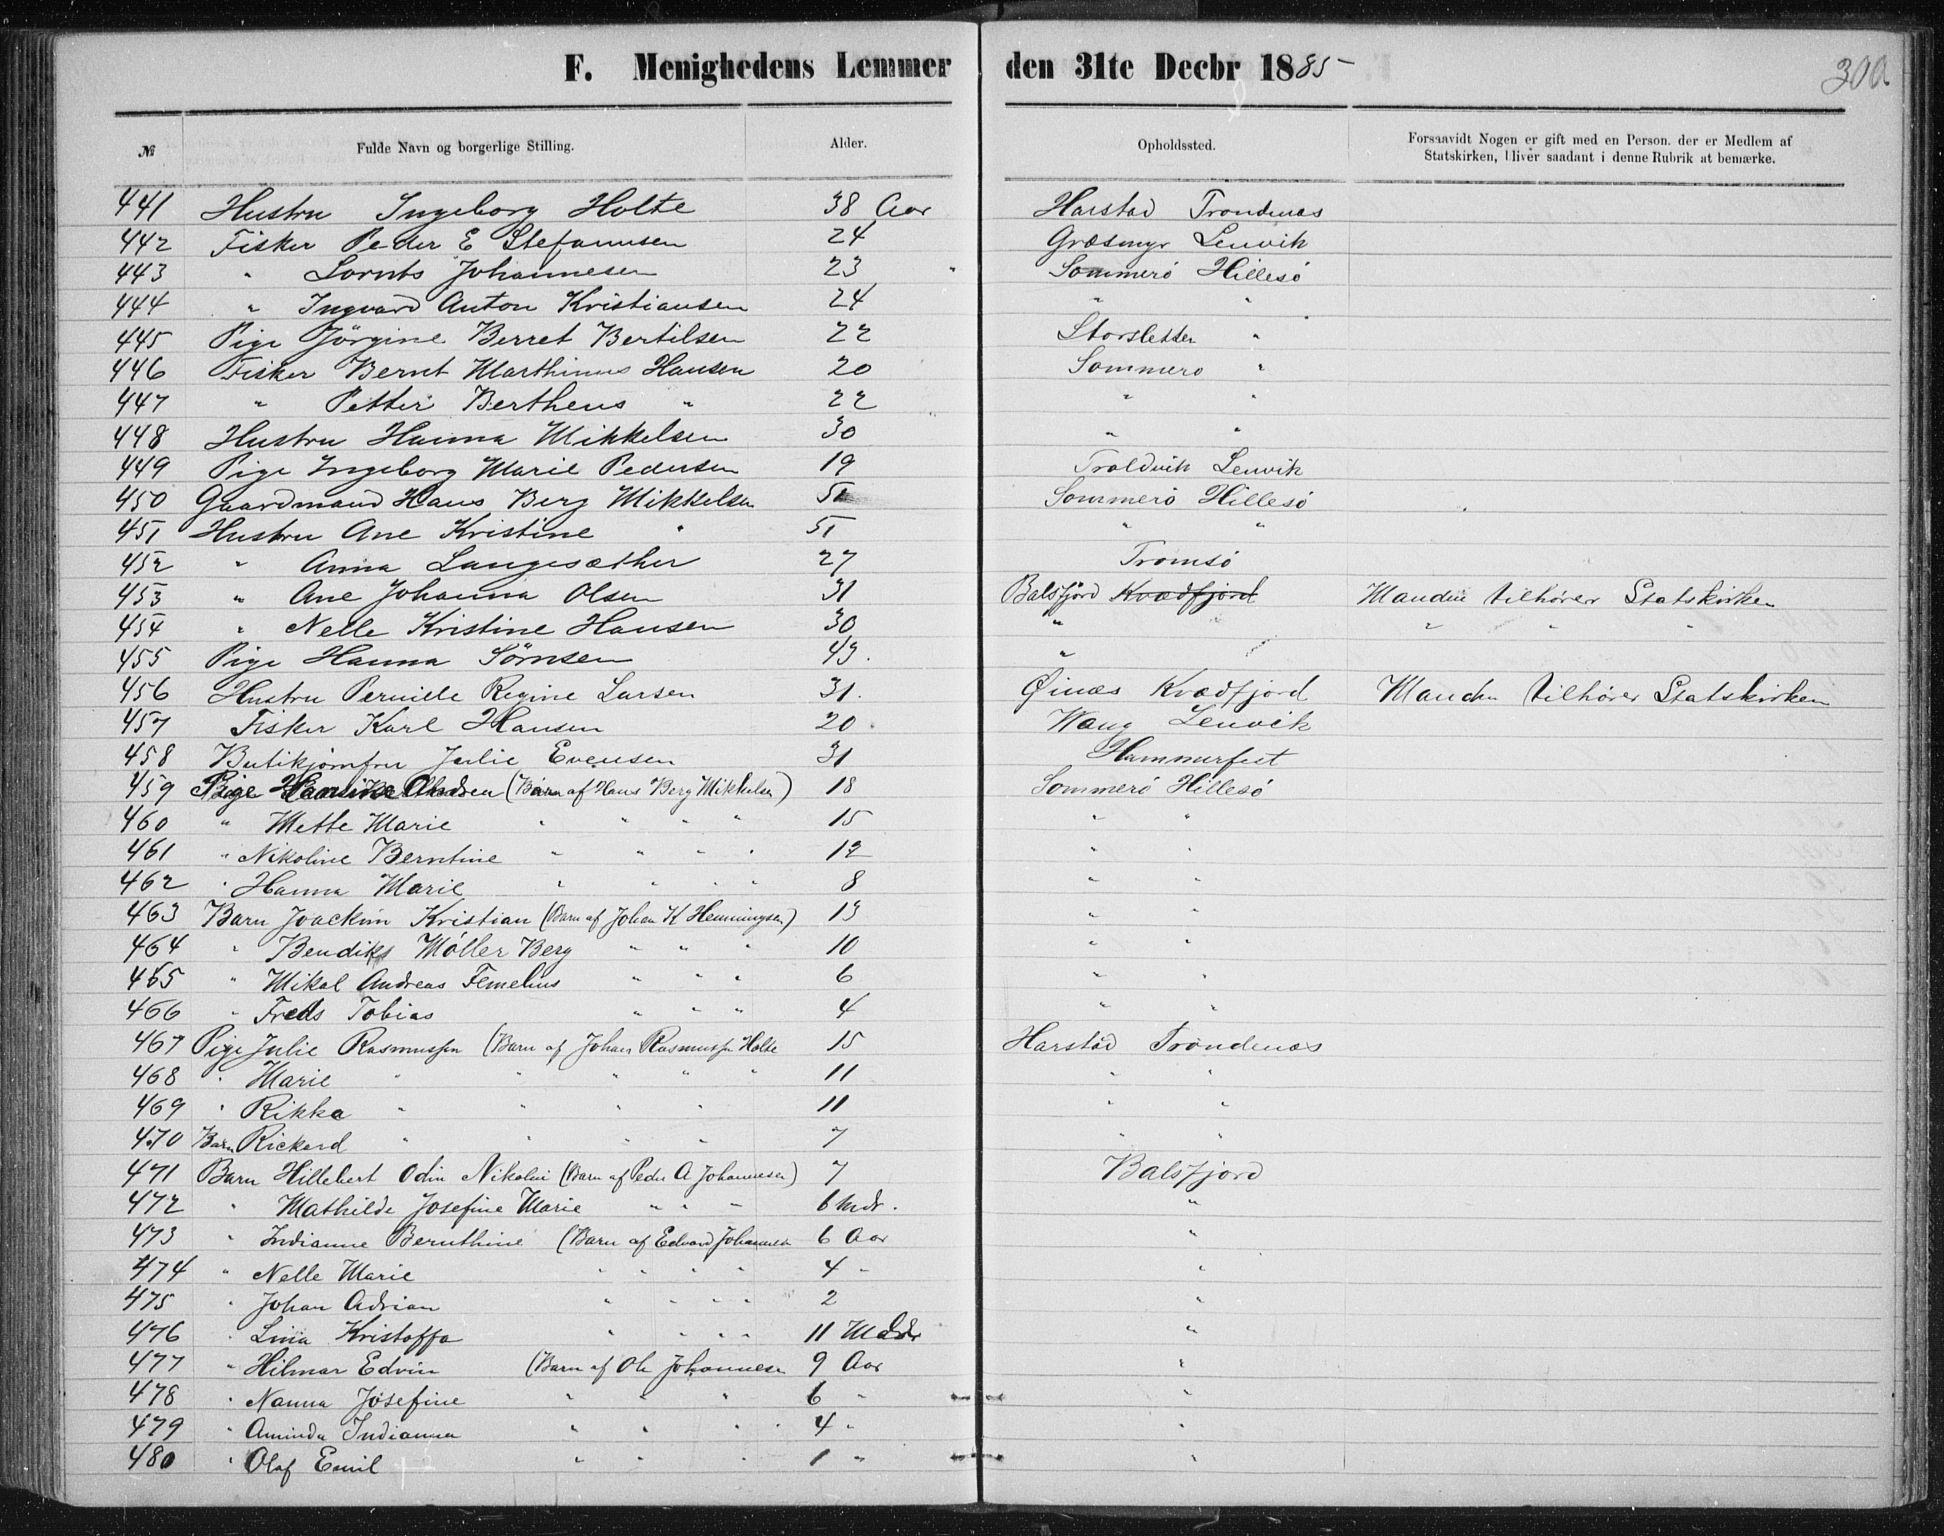 F. Menighedens Lemmer den 31te Decbr 1885-
300.
№ Fulde Navn og borgerlige Stilling. Alder. Opholdssted. Forsaavidt Nogen er gift med en Person, der er Medlem af
Statskirken, bliver saadant i denne Rubrik at bemærke.
441 Hustru Ingeborg Holte 38 Aar Harstad Trondenæs
442 Fisker Peder E Stefanusen 24 Græsmyr Lenvik
443 " Lornts Johannesen 23 " Sommerö Hillesö
444 " Ingvard Anton Kristiansen 24 " "
445 Pige Jörgine Berret Bertilsen 22 Storsletten "
446 Fisker Bernt Marthinus Hansen 20 Sommerö "
447 " Petter Bertheus " 22 " "
448 Hustru Hanna Mikkelsen 30 " "
449 Pige Ingeborg Marie Pedersen 19 Troldvik Lenvik
450 Gaardmand Hans Berg Mikkelsen 51 Sommerö Hillesö
451 Hustru Ane Kristine " 51 " "
452 " Anna Langesæther 27 Tromsö
453 " Ane Johanna Olsen 31 Balsfjord Kvædfjord Manden tilhörer Statskirken
454 " Nelle Kristine Hansen 30 " " " " "
455 Pige Hanna Sörnsen 43. "
456 Hustru Pernille Regine Larsen 31. Øinæs Kvædfjord Manden tilhörer Statskirken
457 Fisker Karl Hansen 20. Wang Lenvik
458 Butikjomfru Julie Evensen 31 Hammerfest
459 Pige Andrea (Barn af Hans Berg Mikkelsen) 18 Sommerö Hillesö
460 " Mette Marie " " " " 15 " "
461 " Nikoline Berntine " " " " 12 " "
462 " Hanna Marie " " " " 8 " "
463 Barn Joackim Kristian (Barn af Johan K Henningsen) 13 " "
464 " Bendiks Möller Berg " " " 10 " "
465 " Mikal Andreas Femelius " " " 6 " "
466 " Freds Tobias " " " 4 " "
467 Pige Julie Rasmussen (Barn af Johan Rasmussen Holte 15 Harstad Trondenæs
468 " Marie " " " " " 11 " "
469 " Rikka " " " " 11 " "
470 Barn Rickard " " " " 7 " "
471 Barn Hillebert Odin Nikolai (Barn af Peder A Johannesen) 7 Balsfjord
472 " Mathilde Josefine Marie " " " 6 Mdr. "
473 " Indianne Bernthine (Barn af Edvard Johannesen 6 Aar "
474 " Nelle Marie " " " " 4 " "
475 " Johan Adrian " " " " 2 "
476 " Lina Kristoffa " " " " 11 Mdr "
477 " Hilmar Edvin (Barn af Ole Johannesen 9 Aar "
478 " Nanna Josefine " " " 6 " "
479 " Aminda Indianna " " " " 4 " "
480 " Olaf Emil " " " 1 " "